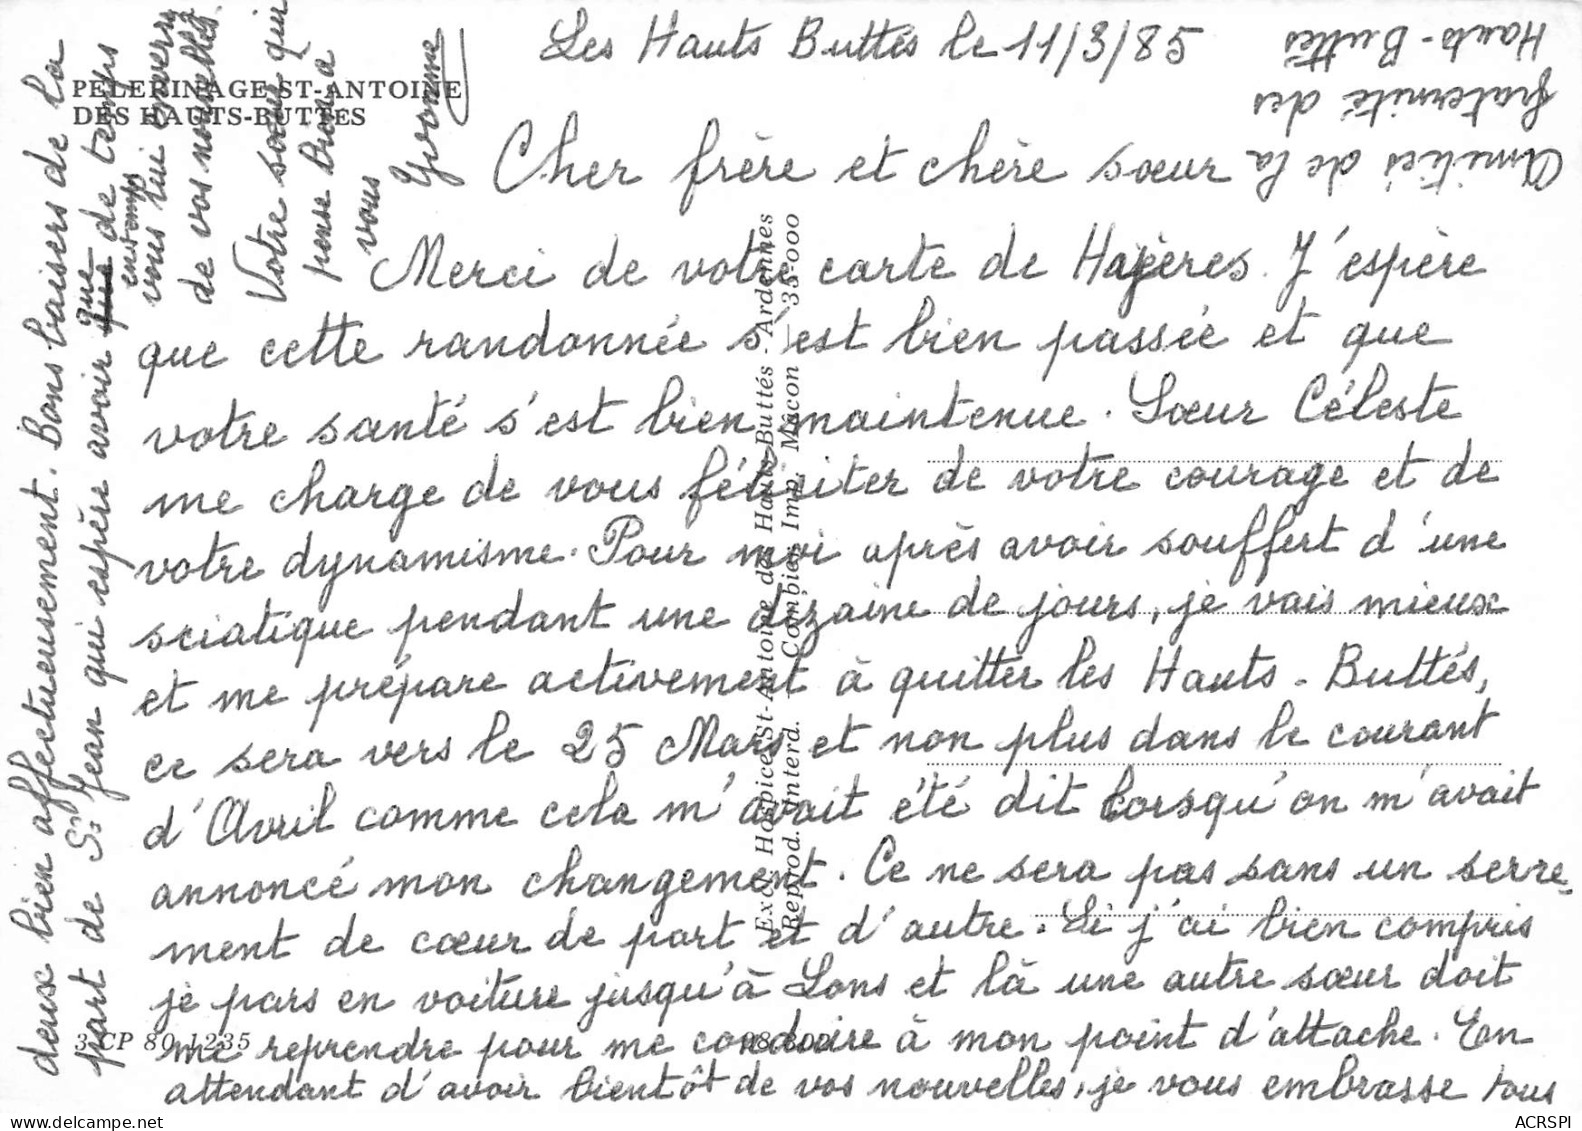 Les Hauts Buttés le 11/3/85
Cher frère et chère sœur
Merci de votre carte de Hyères. J'espère
que cette randonnée s'est bien passée et que
votre santé s'est bien maintenue. Sœur Céleste
me charge de vous féliciter de votre courage et de
votre dynamisme. Pour moi après avoir souffert d'une
sciatique pendant une dizaine de jours, je vais mieux
et me prépare activement à quitter les Hauts-Buttés,
ce sera vers le 25 Mars et non plus dans le courant
d'Avril comme cela m'avait été dit lorsqu'on m'avait
annoncé mon changement. Ce ne sera pas sans un serre-
ment de cœur de part et d'autre. Si j'ai bien compris
je pars en voiture jusqu'à Lons et là une autre sœur doit
me reprendre pour me conduire à mon point d'attache. En
attendant d'avoir bientôt de vos nouvelles, je vous embrasse tous
deux bien affectueusement. Bons baisers de la
part de St Jean qui espère avoir que de temps
en temps
vous lui enverrez
de vos nouvelles.
Votre sœur qui
pense bien à
vous
Yvonne
Amitiés de la
fraternité des
Hauts-Buttés
PELERINAGE ST-ANTOINE
DES HAUTS-BUTTES
Excl. Hospice St-Antoine des Hauts-Buttés - Ardennes
Reprod. Interd. Combier Imp. Macon 35-000
3 CP 80 1235
ACRSPI